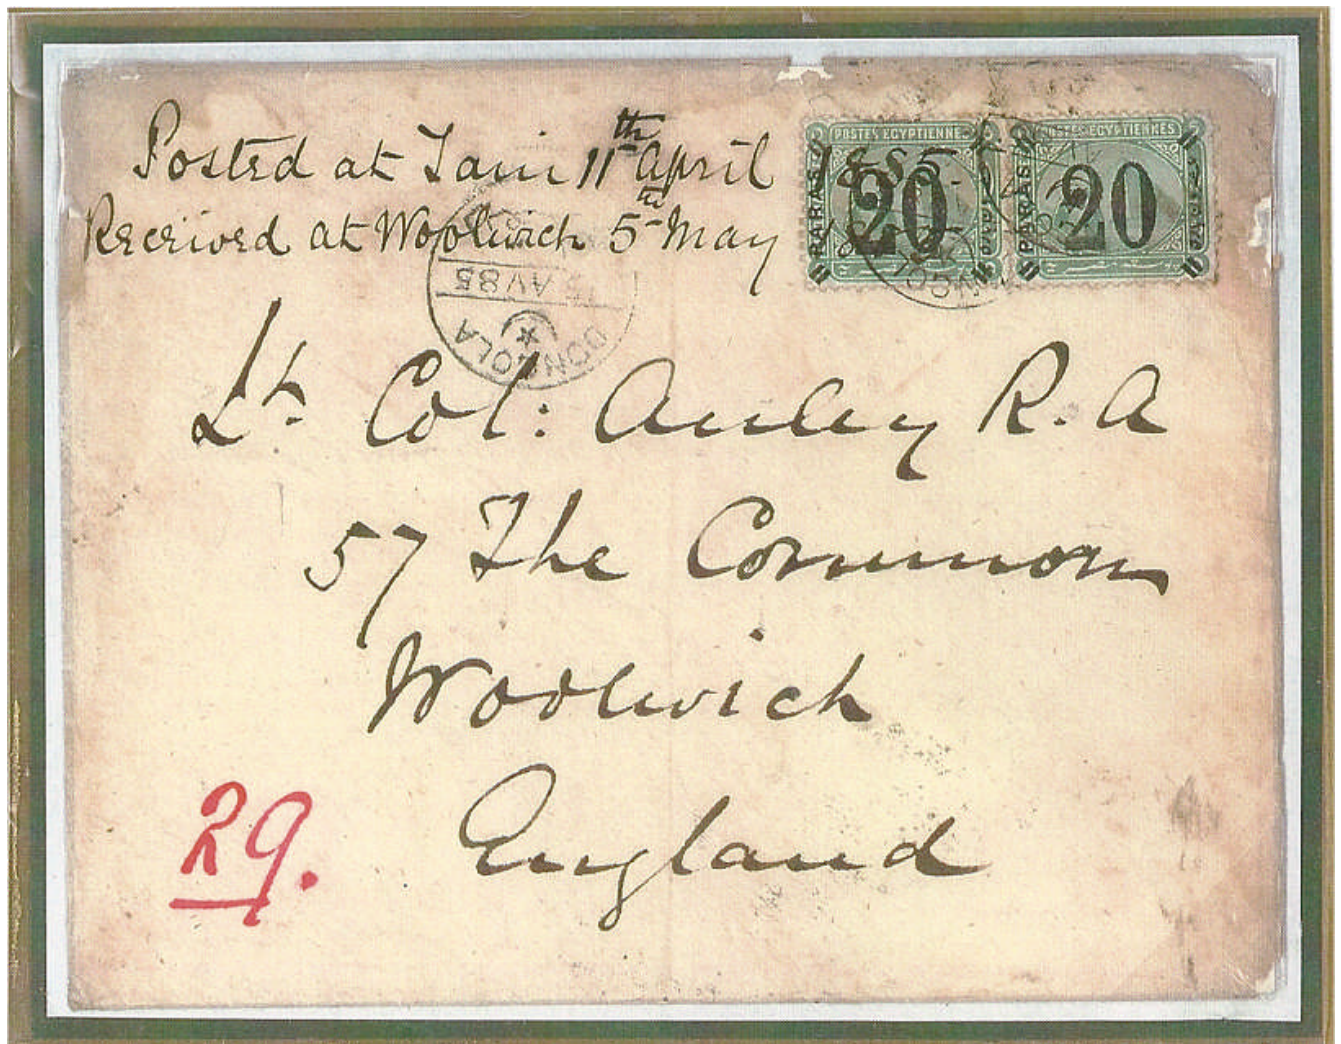 Posted at Tani 11th april 1885
Received at Woolwich 5th May
POSTES EGYPTIENNES
POSTES EGYPTIENNES
PARAS 20 PARAS
PARAS 20 PARAS
DONGOLA
AV 85
Lt. Col: Anley R. A
57 The Common
Woolwich
England
29.